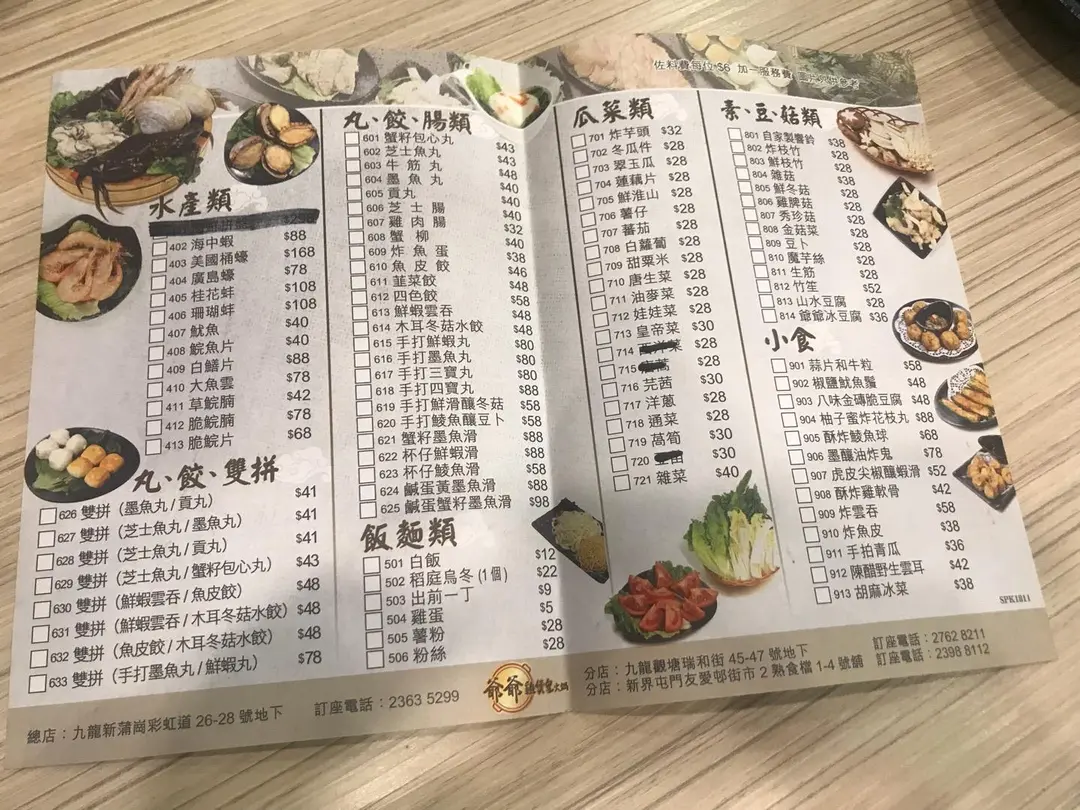 佐料費每位 $6 加一服務費 圖片只供參考
水產類
402 海中蝦 $88
403 美國桶蠔 $168
404 廣島蠔 $78
405 桂花蚌 $108
406 珊瑚蚌 $108
407 魷魚 $40
408 鯇魚片 $40
409 白鱔片 $88
410 大魚雲 $78
411 草鯇腩 $42
412 脆鯇腩 $78
413 脆鯇片 $68
丸、餃、雙拼
626 雙拼（墨魚丸 / 貢丸） $41
627 雙拼（芝士魚丸 / 墨魚丸） $41
628 雙拼（芝士魚丸 / 貢丸） $41
629 雙拼（芝士魚丸 / 蟹籽包心丸） $43
630 雙拼（鮮蝦雲吞 / 魚皮餃） $48
631 雙拼（鮮蝦雲吞 / 木耳冬菇水餃） $48
632 雙拼（魚皮餃 / 木耳冬菇水餃） $48
633 雙拼（手打墨魚丸 / 鮮蝦丸） $78
丸、餃、腸類
601 蟹籽包心丸 $43
602 芝士魚丸 $43
603 牛筋丸 $48
604 墨魚丸 $40
605 貢丸 $40
606 芝士腸 $40
607 雞肉腸 $32
608 蟹柳 $40
609 炸魚蛋 $38
610 魚皮餃 $46
611 韮菜餃 $48
612 四色餃 $58
613 鮮蝦雲吞 $48
614 木耳冬菇水餃 $48
615 手打鮮蝦丸 $80
616 手打墨魚丸 $80
617 手打三寶丸 $80
618 手打四寶丸 $88
619 手打鮮滑釀冬菇 $58
620 手打鯪魚釀豆卜 $58
621 蟹籽墨魚滑 $88
622 杯仔鮮蝦滑 $88
623 杯仔鯪魚滑 $58
624 鹹蛋黃墨魚滑 $88
625 鹹蛋蟹籽墨魚滑 $98
飯麵類
501 白飯 $12
502 稻庭烏冬 (1個) $22
503 出前一丁 $9
504 雞蛋 $5
505 薯粉 $28
506 粉絲 $28
瓜菜類
701 炸芋頭 $32
702 冬瓜件 $28
703 翠玉瓜 $28
704 蓮藕片 $28
705 鮮淮山 $28
706 薯仔 $28
707 蕃茄 $28
708 白蘿蔔 $28
709 甜粟米 $28
710 唐生菜 $28
711 油麥菜 $28
712 娃娃菜 $28
713 皇帝菜 $30
714 $28
715 $28
716 芫茜 $30
717 洋蔥 $28
718 通菜 $28
719 萵筍 $30
720 $30
721 雜菜 $40
素、豆、菇類
801 自家製響鈴 $38
802 炸枝竹 $28
803 鮮枝竹 $28
804 雜菇 $38
805 鮮冬菇 $28
806 雞脾菇 $28
807 秀珍菇 $28
808 金菇菜 $28
809 豆卜 $28
810 魔芋絲 $28
811 生筋 $28
812 竹笙 $52
813 山水豆腐 $28
814 爺爺冰豆腐 $36
小食
901 蒜片和牛粒 $58
902 椒鹽魷魚鬚 $48
903 八味金磚脆豆腐 $48
904 柚子蜜炸花枝丸 $88
905 酥炸鯪魚球 $68
906 墨釀油炸鬼 $78
907 虎皮尖椒釀蝦滑 $52
908 酥炸雞軟骨 $42
909 炸雲吞 $58
910 炸魚皮 $38
911 手拍青瓜 $36
912 陳醋野生雲耳 $42
913 胡麻冰菜 $38
SPK1811
總店：九龍新蒲崗彩虹道 26-28 號地下 訂座電話：2363 5299
爺爺雞煲鬼火鍋
分店：九龍觀塘瑞和街 45-47 號地下 訂座電話：2762 8211
分店：新界屯門友愛邨街市 2 熟食檔 1-4 號舖 訂座電話：2398 8112